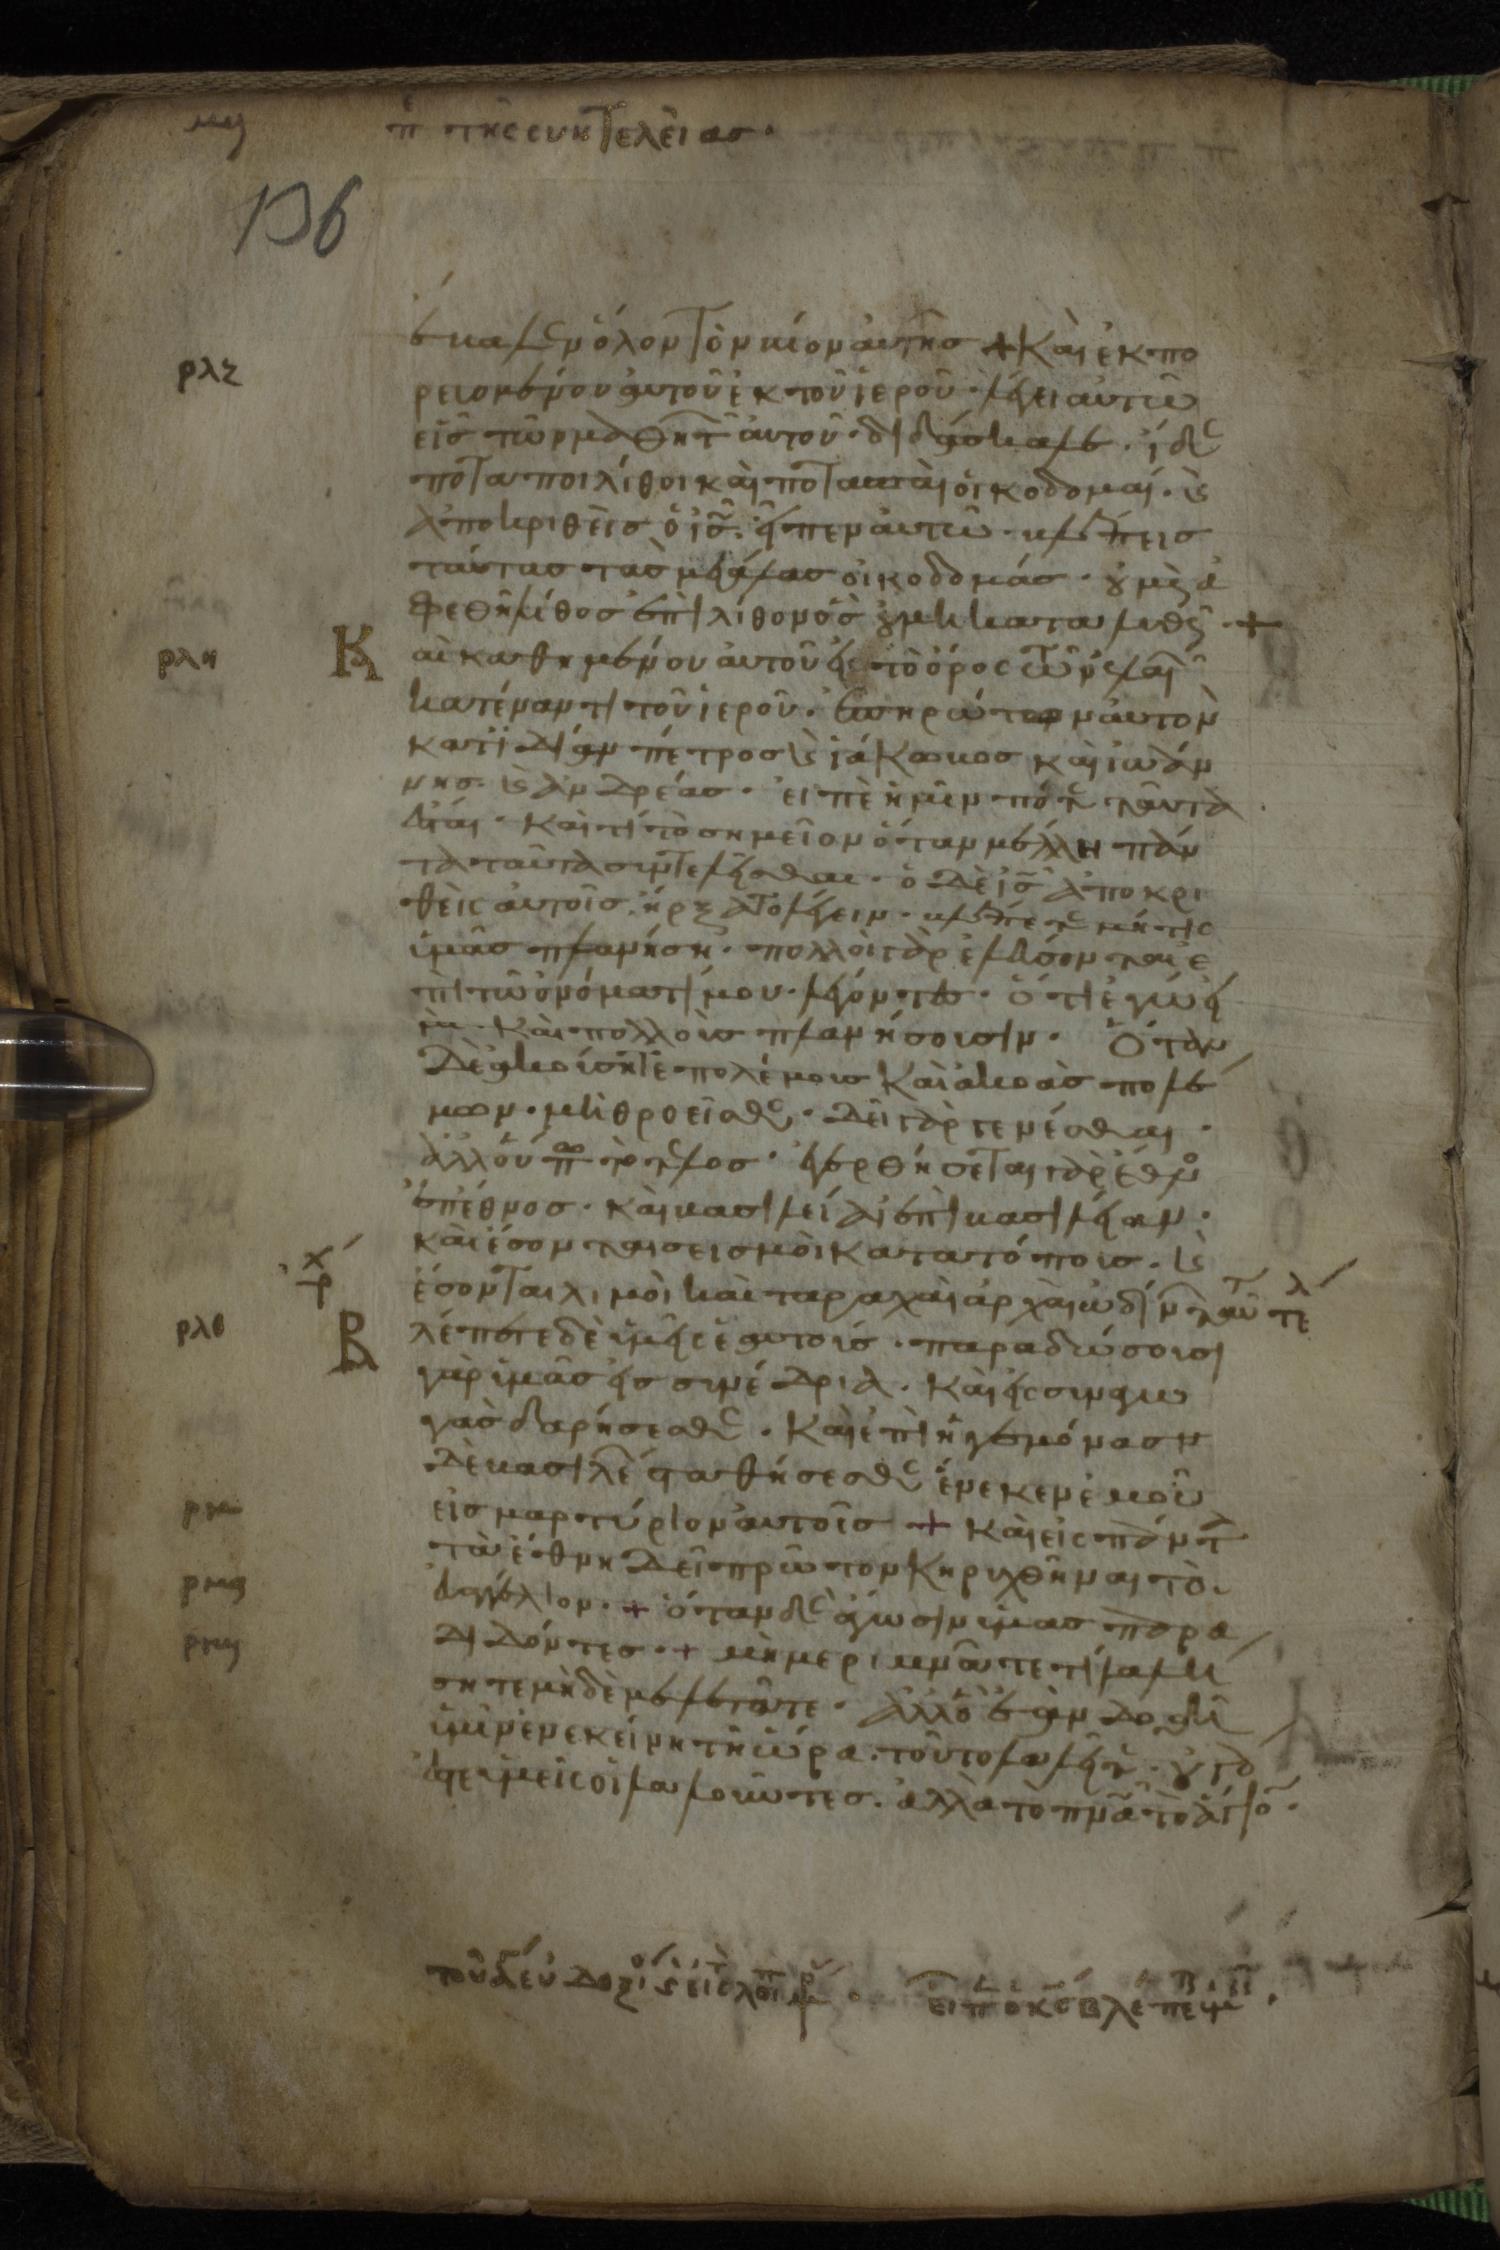 μγ π τῆς συντελείας.
136
ἔβαλεν ὅλον τὸν βίον αὐτῆς + Καὶ ἐκπο
ρλζ
ρευομένου αὐτοῦ ἐκ τοῦ ἱεροῦ. λέγει αὐτῶ
εἷς τῶν μαθητ αὐτοῦ. διδάσκαλε. ἴδε
ποταποὶ λίθοι καὶ ποταπαὶ οἰκοδομαί. κ
ἀποκριθεὶς ὁ ις. εἶπεν αὐτῶ. βλέπεις
ταύτας τὰς μεγάλας οἰκοδομάς. οὐ μὴ ἀ
φεθῆ λίθος ἐπὶ λίθον ὃς οὐ μὴ καταλυθῆ. +
ρλη
Καὶ καθημένου αὐτοῦ εἰς τὸ ὄρος τῶν ἐλαι
κατέναντι τοῦ ἱεροῦ. ἐπηρώτων αὐτὸν
κατιδίαν πέτρος κ ἰάκωβος καὶ ἰωάν
νης. κ ἀνδρέας. εἰπὲ ἡμῖν πότε ταῦτα
ἔσται. καὶ τί τὸ σημεῖον ὅταν μέλλη πάν
τα ταῦτα συντελεῖσθαι. ὁ δὲ ις ἀποκρι
θεὶς αὐτοῖς. ἤρξατο λέγειν. βλέπετε μή τις
ὑμᾶς πλανήση. πολλοὶ γὰρ ἐλεύσονται ἐ
πὶ τῶ ὀνόματί μου. λέγοντες. ὅτι ἐγώ εἰ
μι. καὶ πολλοὺς πλανήσουσιν. Ὅταν
δὲ ἀκούσητε πολέμους καὶ ἀκοὰς πολέ
μων. μὴ θροεῖσθε. δεῖ γὰρ γενέσθαι.
ἀλλ οὔπω τὸ τέλος. ἐγερθήσεται γὰρ ἔθνο
ἐπ ἔθνος. καὶ βασιλεία ἐπὶ βασιλείαν.
καὶ ἔσονται σεισμοὶ κατα τόπους. κ
ἔσονται λιμοὶ καὶ ταραχαὶ ἀρχαὶ ὠδίν ταῦτ τελ
ρλθ
Βλέπετε δὲ ὑμεῖς ἑαυτούς. παραδώσουσι
γὰρ ὑμᾶς εἰς συνέδρια. καὶ εἰς συναγω
γὰς δαρήσεσθε. καὶ ἐπὶ ἡγεμόνας κ
δὲ βασιλέ σταθήσεσθε ἕνεκεν ἐμοῦ
ρμ
εἰς μαρτύριον αὐτοῖς + καὶ εἰς πάντ
τὰ ἔθνη δεῖ πρῶτον κηρυχθῆναι τὸ
ρμα
εὐαγγέλιον. + ὅταν δὲ ἄγωσιν ὑμας παρα
ρμβ
διδόντες. + μὴ μεριμνᾶτε τί λαλή
σητε μηδὲ μελετᾶτε. ἀλλ ὃ ἐὰν δοθῆ
ὑμῖν ἐν ἐκείνη τῆ ὥρα. τοῦτο λαλεῖτε. οὐ γάρ
ἐστε ὑμεῖς οἱ λαλοῦντες. ἀλλὰ τὸ πνα τὸ ἅγιο.